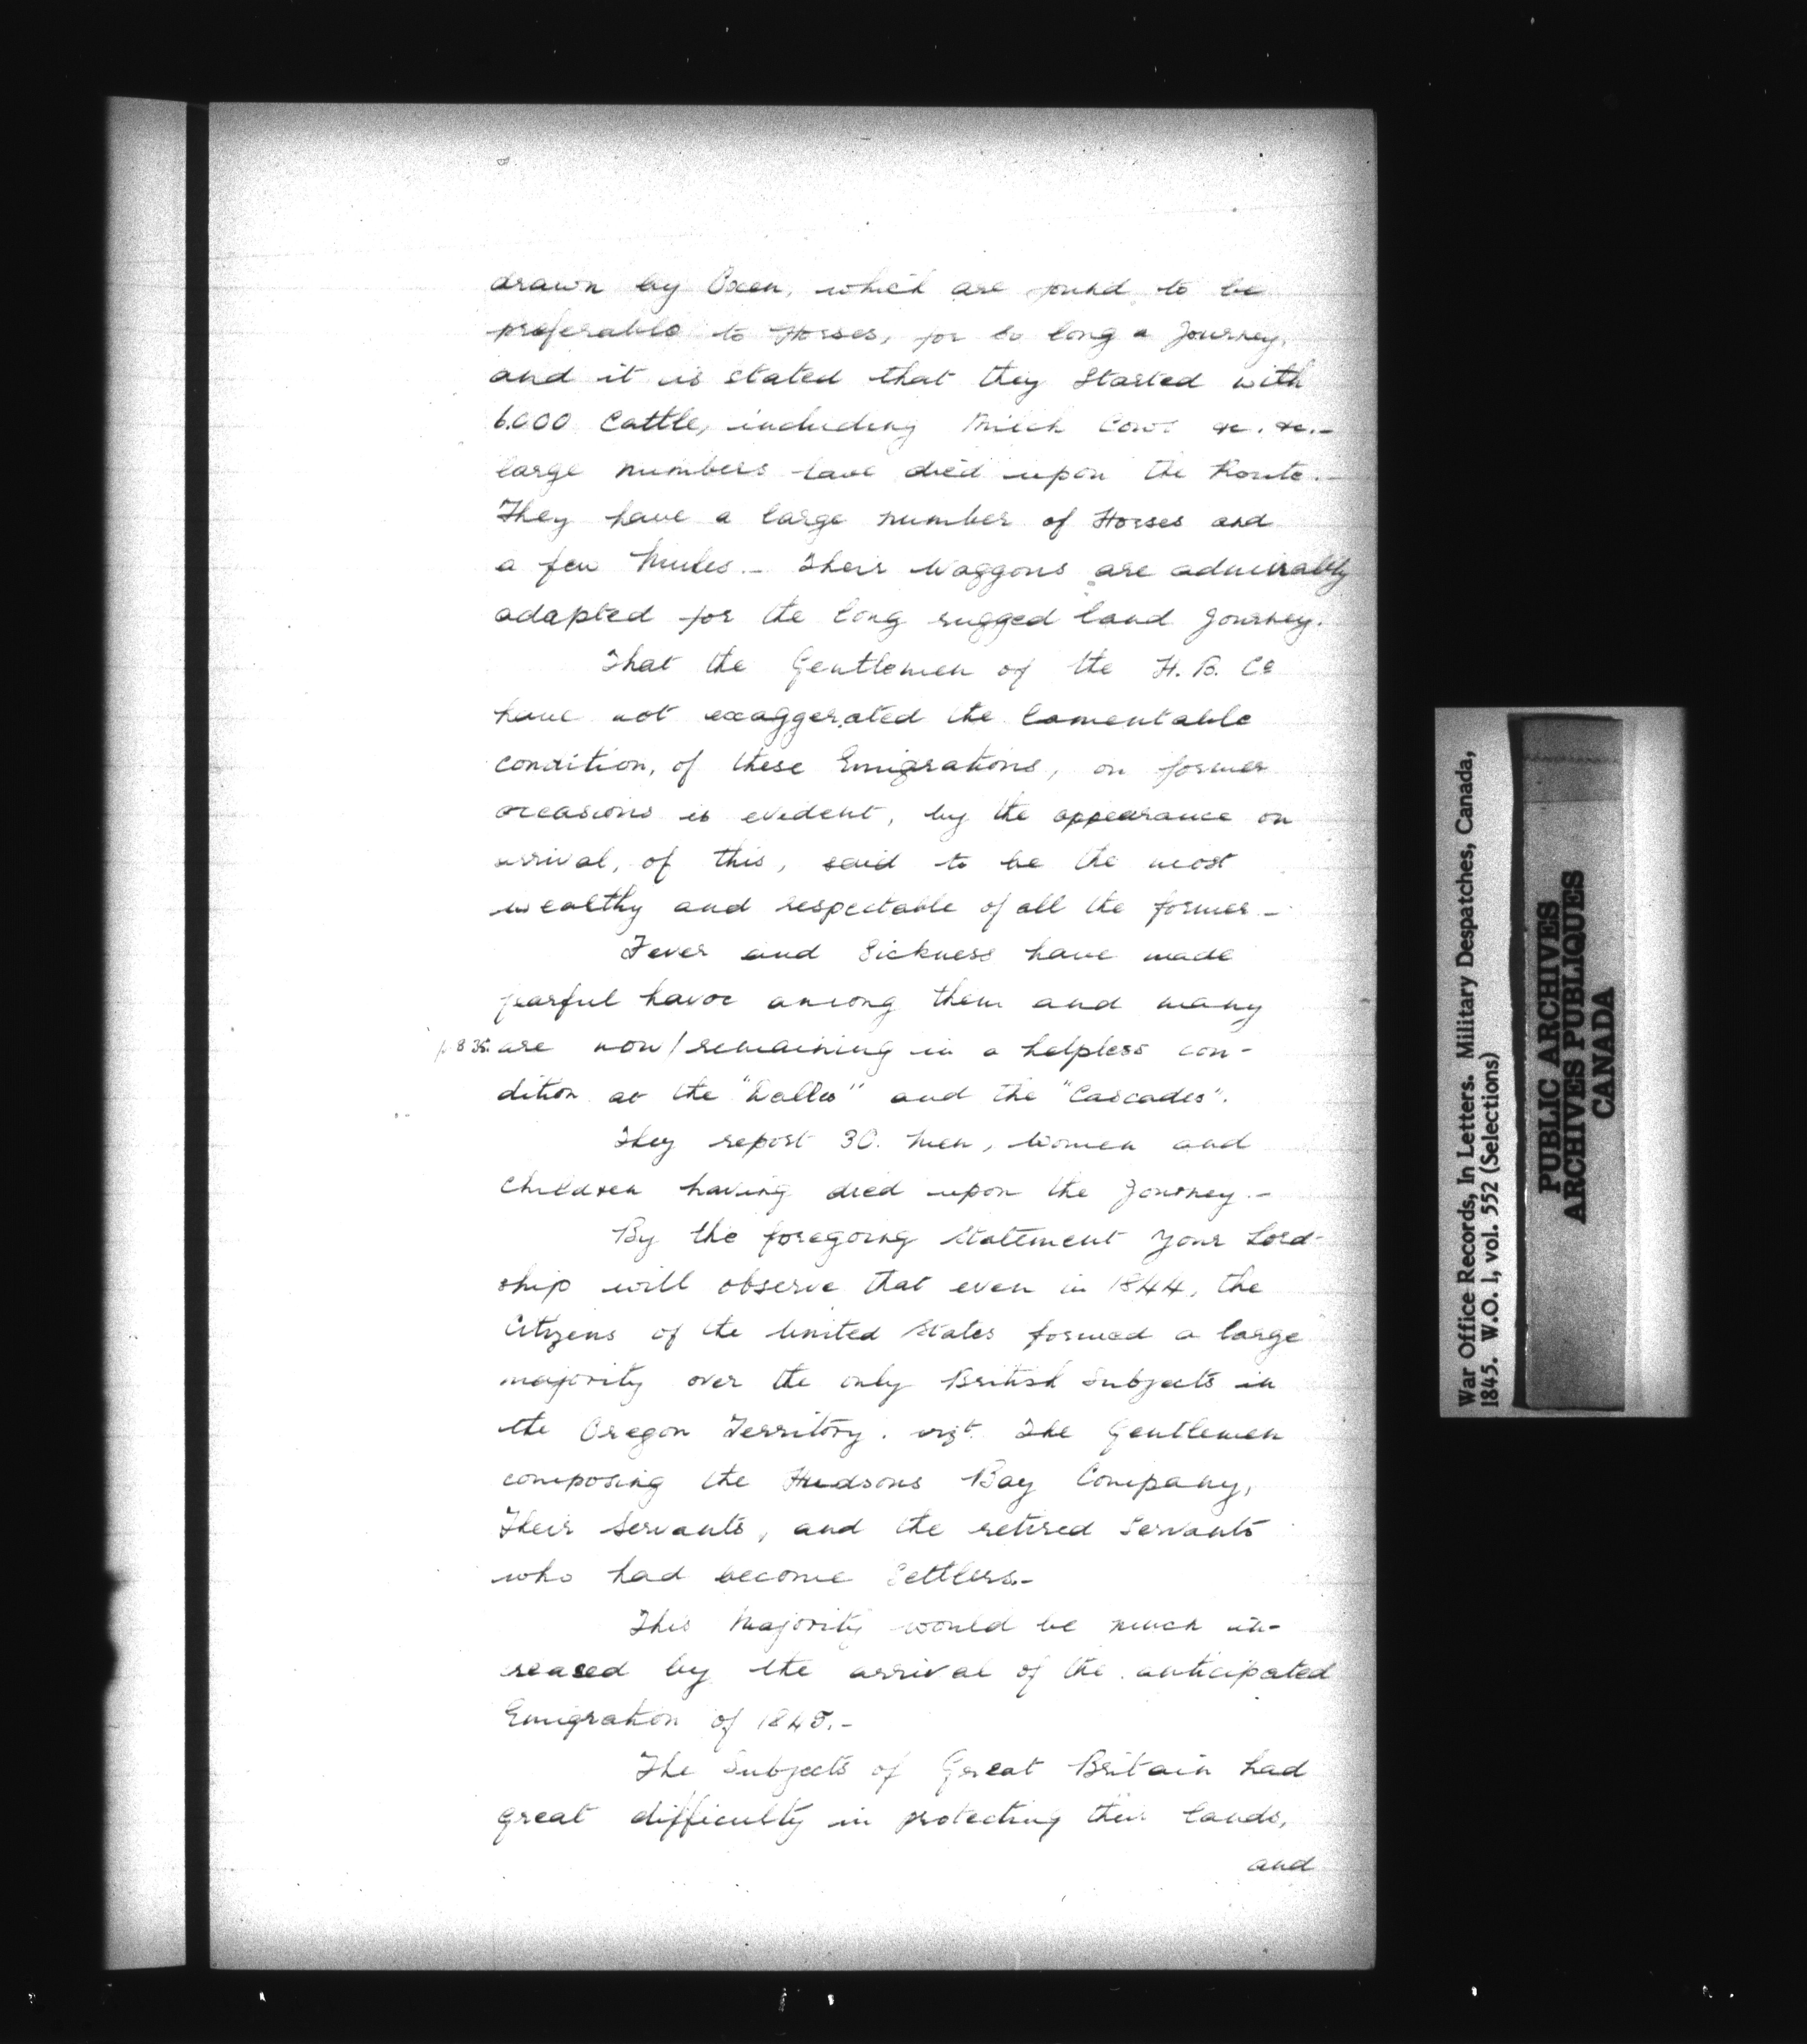 drawn by Oxen, which are found to be
preferable to Horses, for so long a Journey,
and it is stated that they Started with
6.000 Cattle, including Milch Cows &c. &c.-
large numbers have died upon the Route.-
They have a large number of Horses and
a few Mules.- Their Waggons are admirably
adapted for the long rugged land Journey.
That the Gentlemen of the H. B. Co
have not exaggerated the lamentable
condition, of these Emigrations, on former
occasions is evident, by the appearance on
arrival, of this, said to be the most
wealthy and respectable of all the former-
Fever and Sickness have made
fearful havoc among them and many
p. 835. are now/remaining in a helpless con-
dition at the "Dalles" and the "Cascades".
They report 30. Men, Women and
Children having died upon the Journey.-
By the foregoing Statement Your Lord-
ship will observe that even in 1844, the
Citizens of the United States formed a large
majority over the only British Subjects in
the Oregon Territory. vizt. The Gentlemen
composing the Hudsons Bay Company,
Their Servants, and the retired Servants
who had become Settlers.-
This Majority would be much in-
creased by the arrival of the anticipated
Emigration of 1845.-
The Subjects of Great Britain had
great difficulty in protecting their lands,
and
War Office Records, In Letters. Military Despatches, Canada,
1845. W.O. 1, vol. 552 (Selections)
PUBLIC ARCHIVES
ARCHIVES PUBLIQUES
CANADA